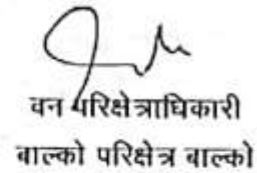 वन परिक्षेत्राधिकारी
बाल्को परिक्षेत्र बाल्को